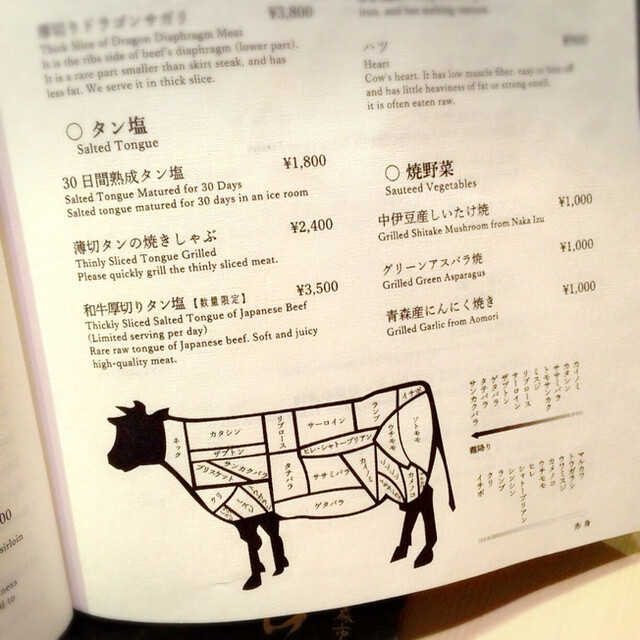 厚切りドラゴンサガリ ¥3,800
Thick Slice of Dragon Diaphragm Meat
It is the ribs side of beef's diaphragm (lower part).
It is a rare part smaller than skirt steak, and has
less fat. We serve it in thick slice.
○ タン塩
Salted Tongue
30日間熟成タン塩 ¥1,800
Salted Tongue Matured for 30 Days
Salted tongue matured for 30 days in an ice room
薄切タンの焼きしゃぶ ¥2,400
Thinly Sliced Tongue Grilled
Please quickly grill the thinly sliced meat.
和牛厚切りタン塩【数量限定】 ¥3,500
Thickly Sliced Salted Tongue of Japanese Beef
(Limited serving per day)
Rare raw tongue of Japanese beef. Soft and juicy
high-quality meat.
ハツ
Heart
Cow's heart. It has low muscle fiber, easy to bite off
and has little heaviness of fat or strong smell,
it is often eaten raw.
○ 焼野菜
Sauteed Vegetables
中伊豆産しいたけ焼 ¥1,000
Grilled Shitake Mushroom from Naka Izu
グリーンアスパラ焼 ¥1,000
Grilled Green Asparagus
青森産にんにく焼き ¥1,000
Grilled Garlic from Aomori
ネック
カタシン
ザブトン
サンカクバラ
ブリスケット
クリ
リブロース
タテバラ
サーロイン
ヒレ・シャトーブリアン
ササミバラ
カイノミ
ゲタバラ
ランプ
イチボ
ウチモモ
ソトモモ
カメノコ
カイノミ
カタシン
ササミバラ
トモサンカク
ミスジ
リブロース
サーロイン
ザブトン
ゲタバラ
タテバラ
サンカクバラ
霜降り
マルカワ
トウガラシ
ウワミスジ
カメノコ
ウチモモ
ヒレ
シャトーブリアン
シンシン
ランプ
クリ
イチボ
赤身
sirloin